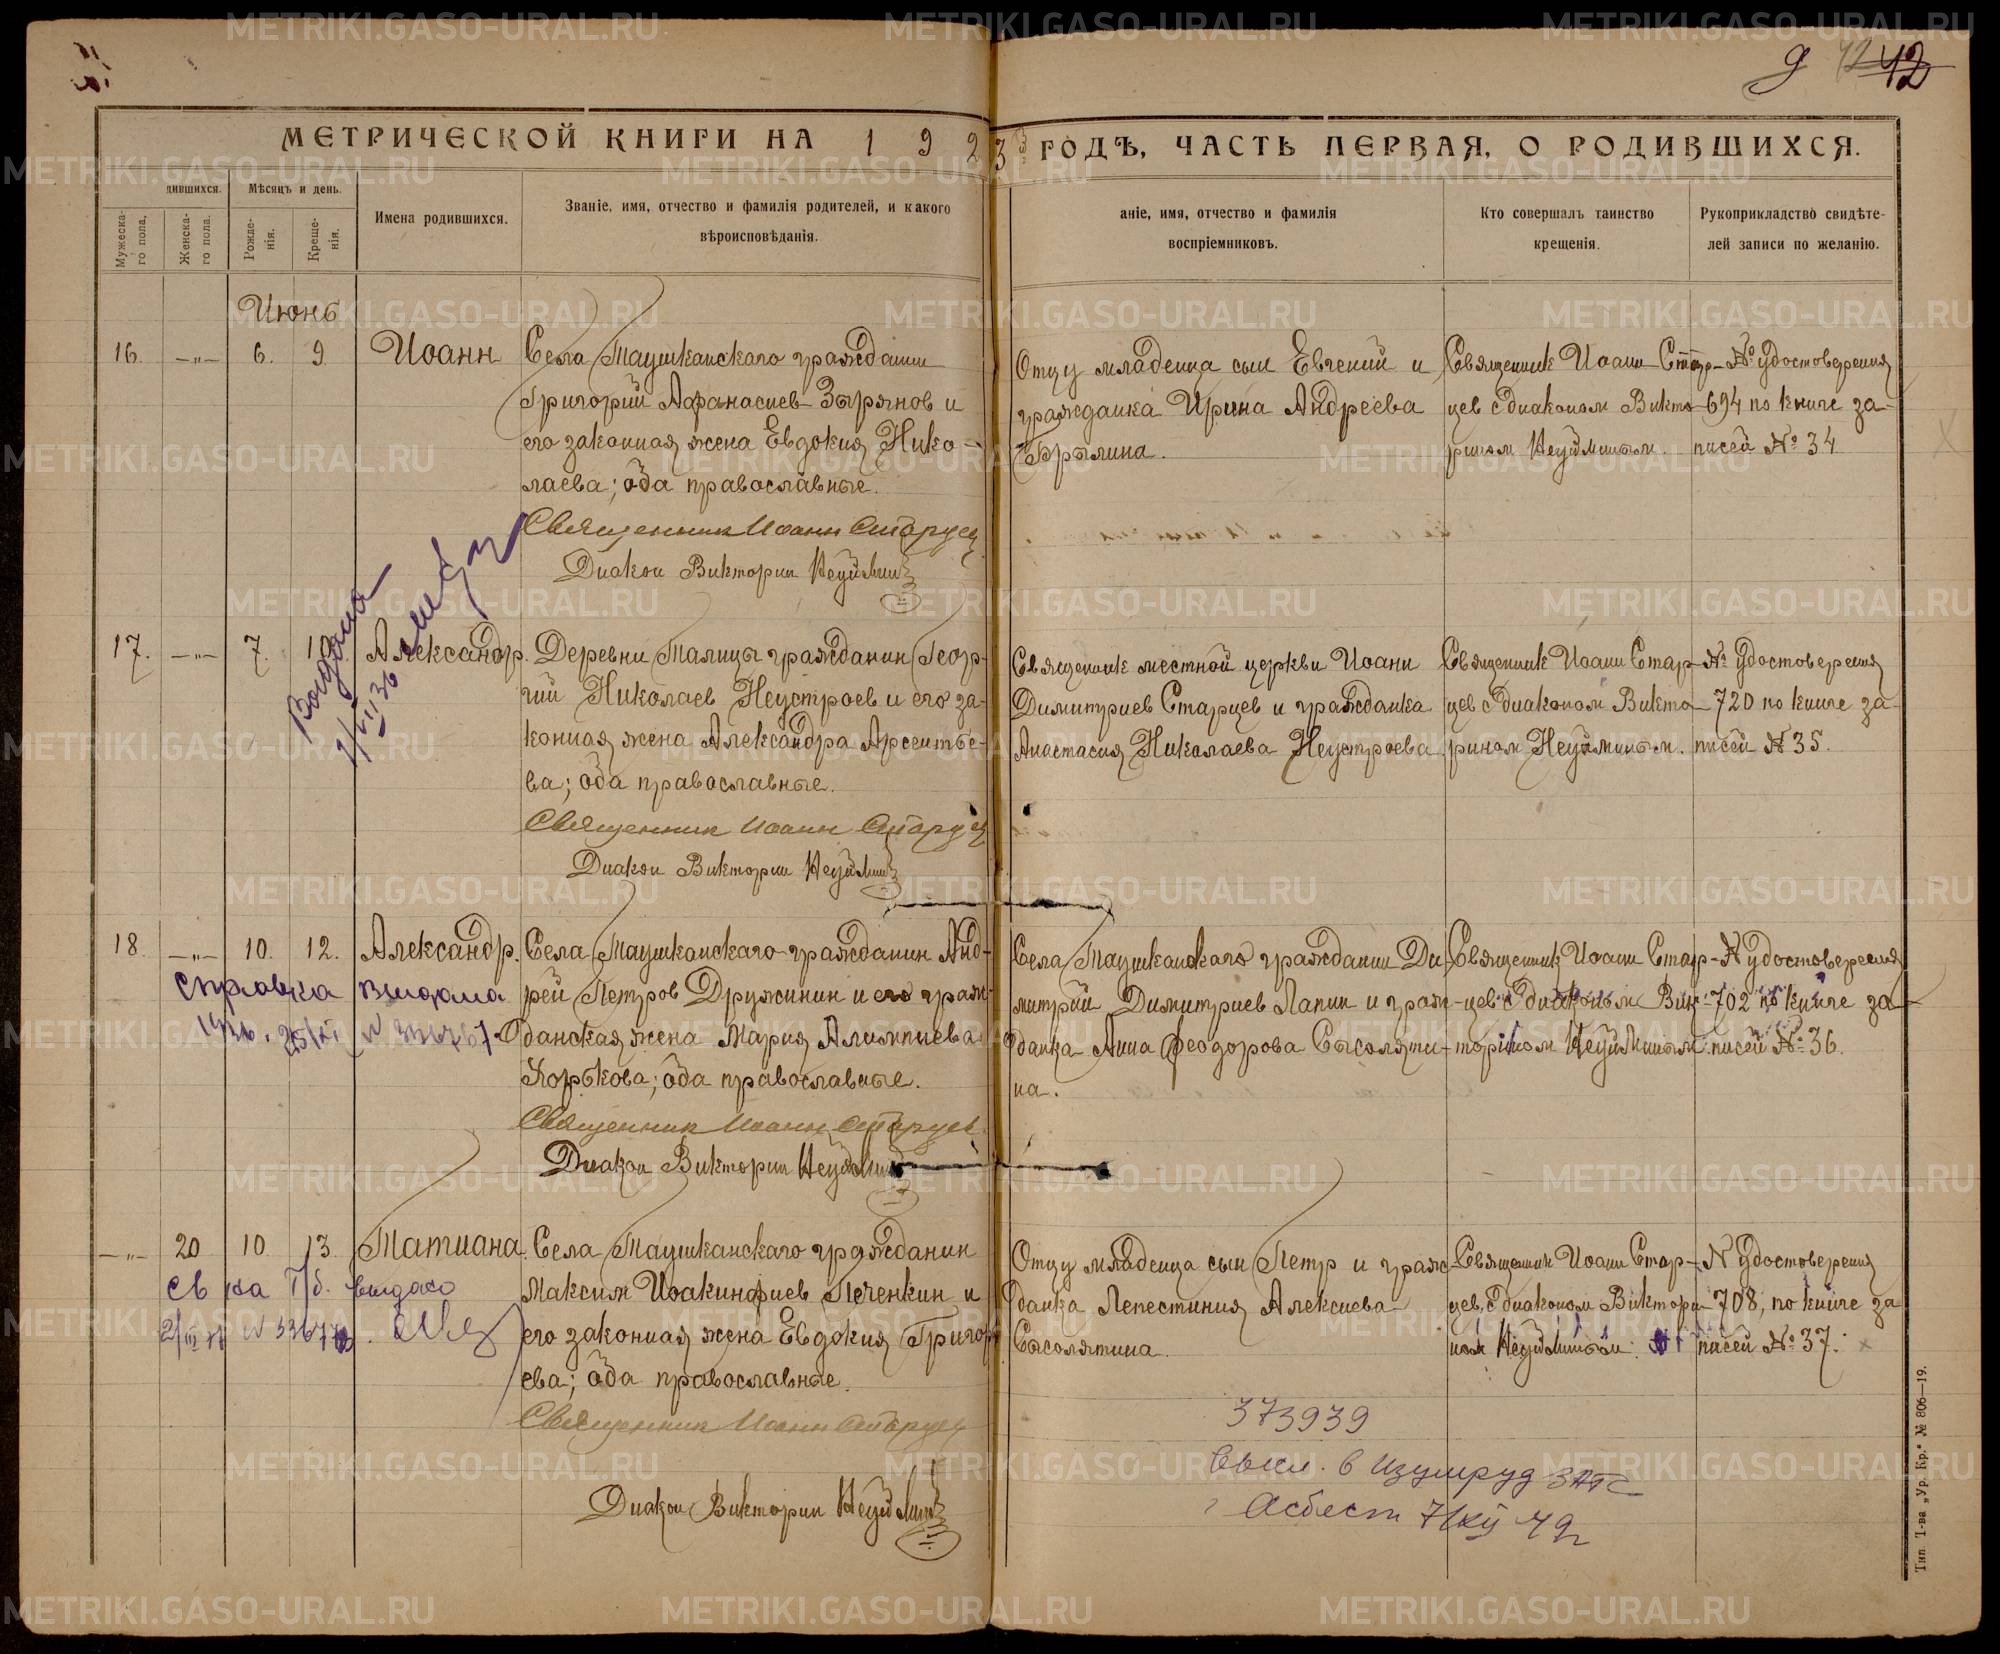 9 42 42
МЕТРИЧЕСКОЙ КНИГИ НА 1923 ГОДЪ, ЧАСТЬ ПЕРВАЯ, О РОДИВШИХСЯ.
дившихся.
Мужеска-
го пола.
Женска-
го пола.
Мѣсяцъ и день.
Рожде-
нія.
Креще-
нія.
Имена родившихся.
Званіе, имя, отчество и фамилія родителей, и какого
вѣроисповѣданія.
аніе, имя, отчество и фамилія
воспріемниковъ.
Кто совершалъ таинство
крещенія.
Рукоприкладство свидѣте-
лей записи по желанію.
Июнь
16. —„— 6. 9. Иоанн
Села Таушканскаго гражданин
Григорий Афанасиев Зырянов и
его законная жена Евдокия Нико-
лаева; оба православные.
Священник Иоанн Старцев
Диакон Викторин Неуймин
Отцу младенца сын Евгений и
гражданка Ирина Андреева
Брылина.
Священник Иоанн Стар-
цев с диаконом Викто-
рином Неуйминым.
№ удостоверения
694 по книге за-
писей № 34
17. —„— 7. 10. Александр.
Выдана
Деревни Талицы гражданин Геор-
гий Николаев Неустроев и его за-
конная жена Александра Арсентье-
ва; оба православные.
Священник Иоанн Старцев
Диакон Викторин Неуймин
Священник местной церкви Иоанн
Димитриев Старцев и гражданка
Анастасия Николаева Неустроева
Священник Иоанн Стар-
цев с диаконом Викто-
рином Неуйминым.
№ удостоверения
720 по книге за-
писей № 35.
18. —„— 10. 12. Александр.
справка выдана
Села Таушканскаго гражданин Анд-
рей Петров Дружинин и его граж-
данская жена Мария Алимпиева
Корькова; оба православные.
Священник Иоанн Старцев
Диакон Викторин Неуймин
Села Таушканскаго гражданин Ди-
митрий Димитриев Лапин и граж-
данка Анна Феодорова Сысоляти-
на.
Священник Иоанн Стар-
цев с диаконом Вик-
торином Неуйминым.
№ удостоверения
702 по книге за-
писей № 36.
—„— 20 10 13 Татиана.
св ка выдано
Села Таушканскаго гражданин
Максим Иоакинфиев Печенкин и
его законная жена Евдокия Григорь
ева; оба православные.
Священник Иоанн Старцев
Диакон Викторин Неуймин
Отцу младенца сын Петр и граж-
данка Лепестиния Алексиева
Сысолятина.
Священник Иоанн Стар-
цев с диаконом Виктори-
ном Неуйминым.
№ удостоверения
708, по книге за
писей № 37.
373939
высл. в Изумруд ЗАГС
г Асбест
Тип. Т-ва „Ур. Кр.“ № 806—19.
METRIKI.GASO-URAL.RU